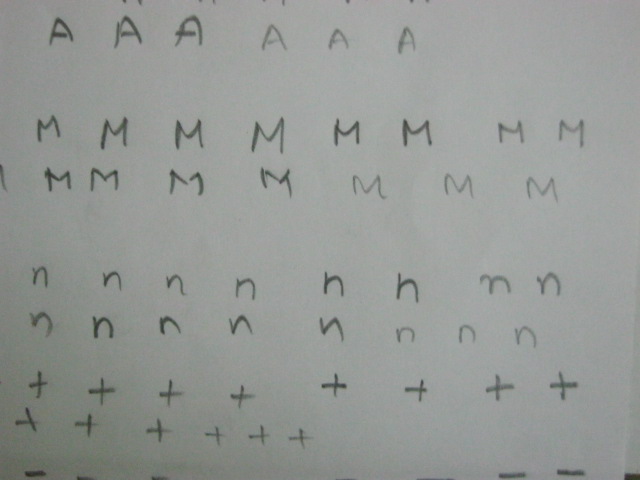 A A A A A A
M M M M M M M M
M M M M M M M
n n n n n n n n
n n n n n n n n
+ + + + + + + +
+ + + + + +
- - - - -